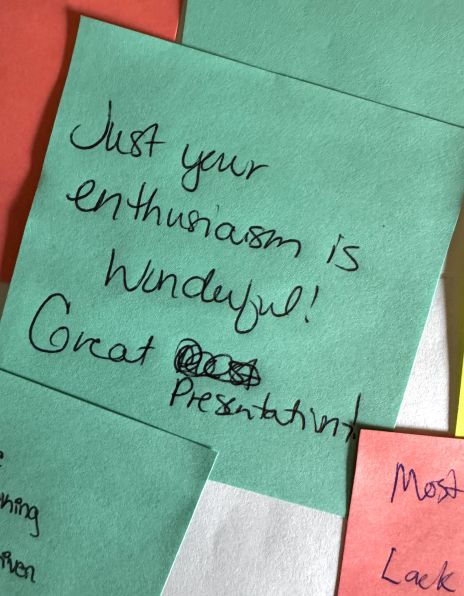 Just your
enthusiasm is
Wonderful!
Great
Presentation!
Most
Lack